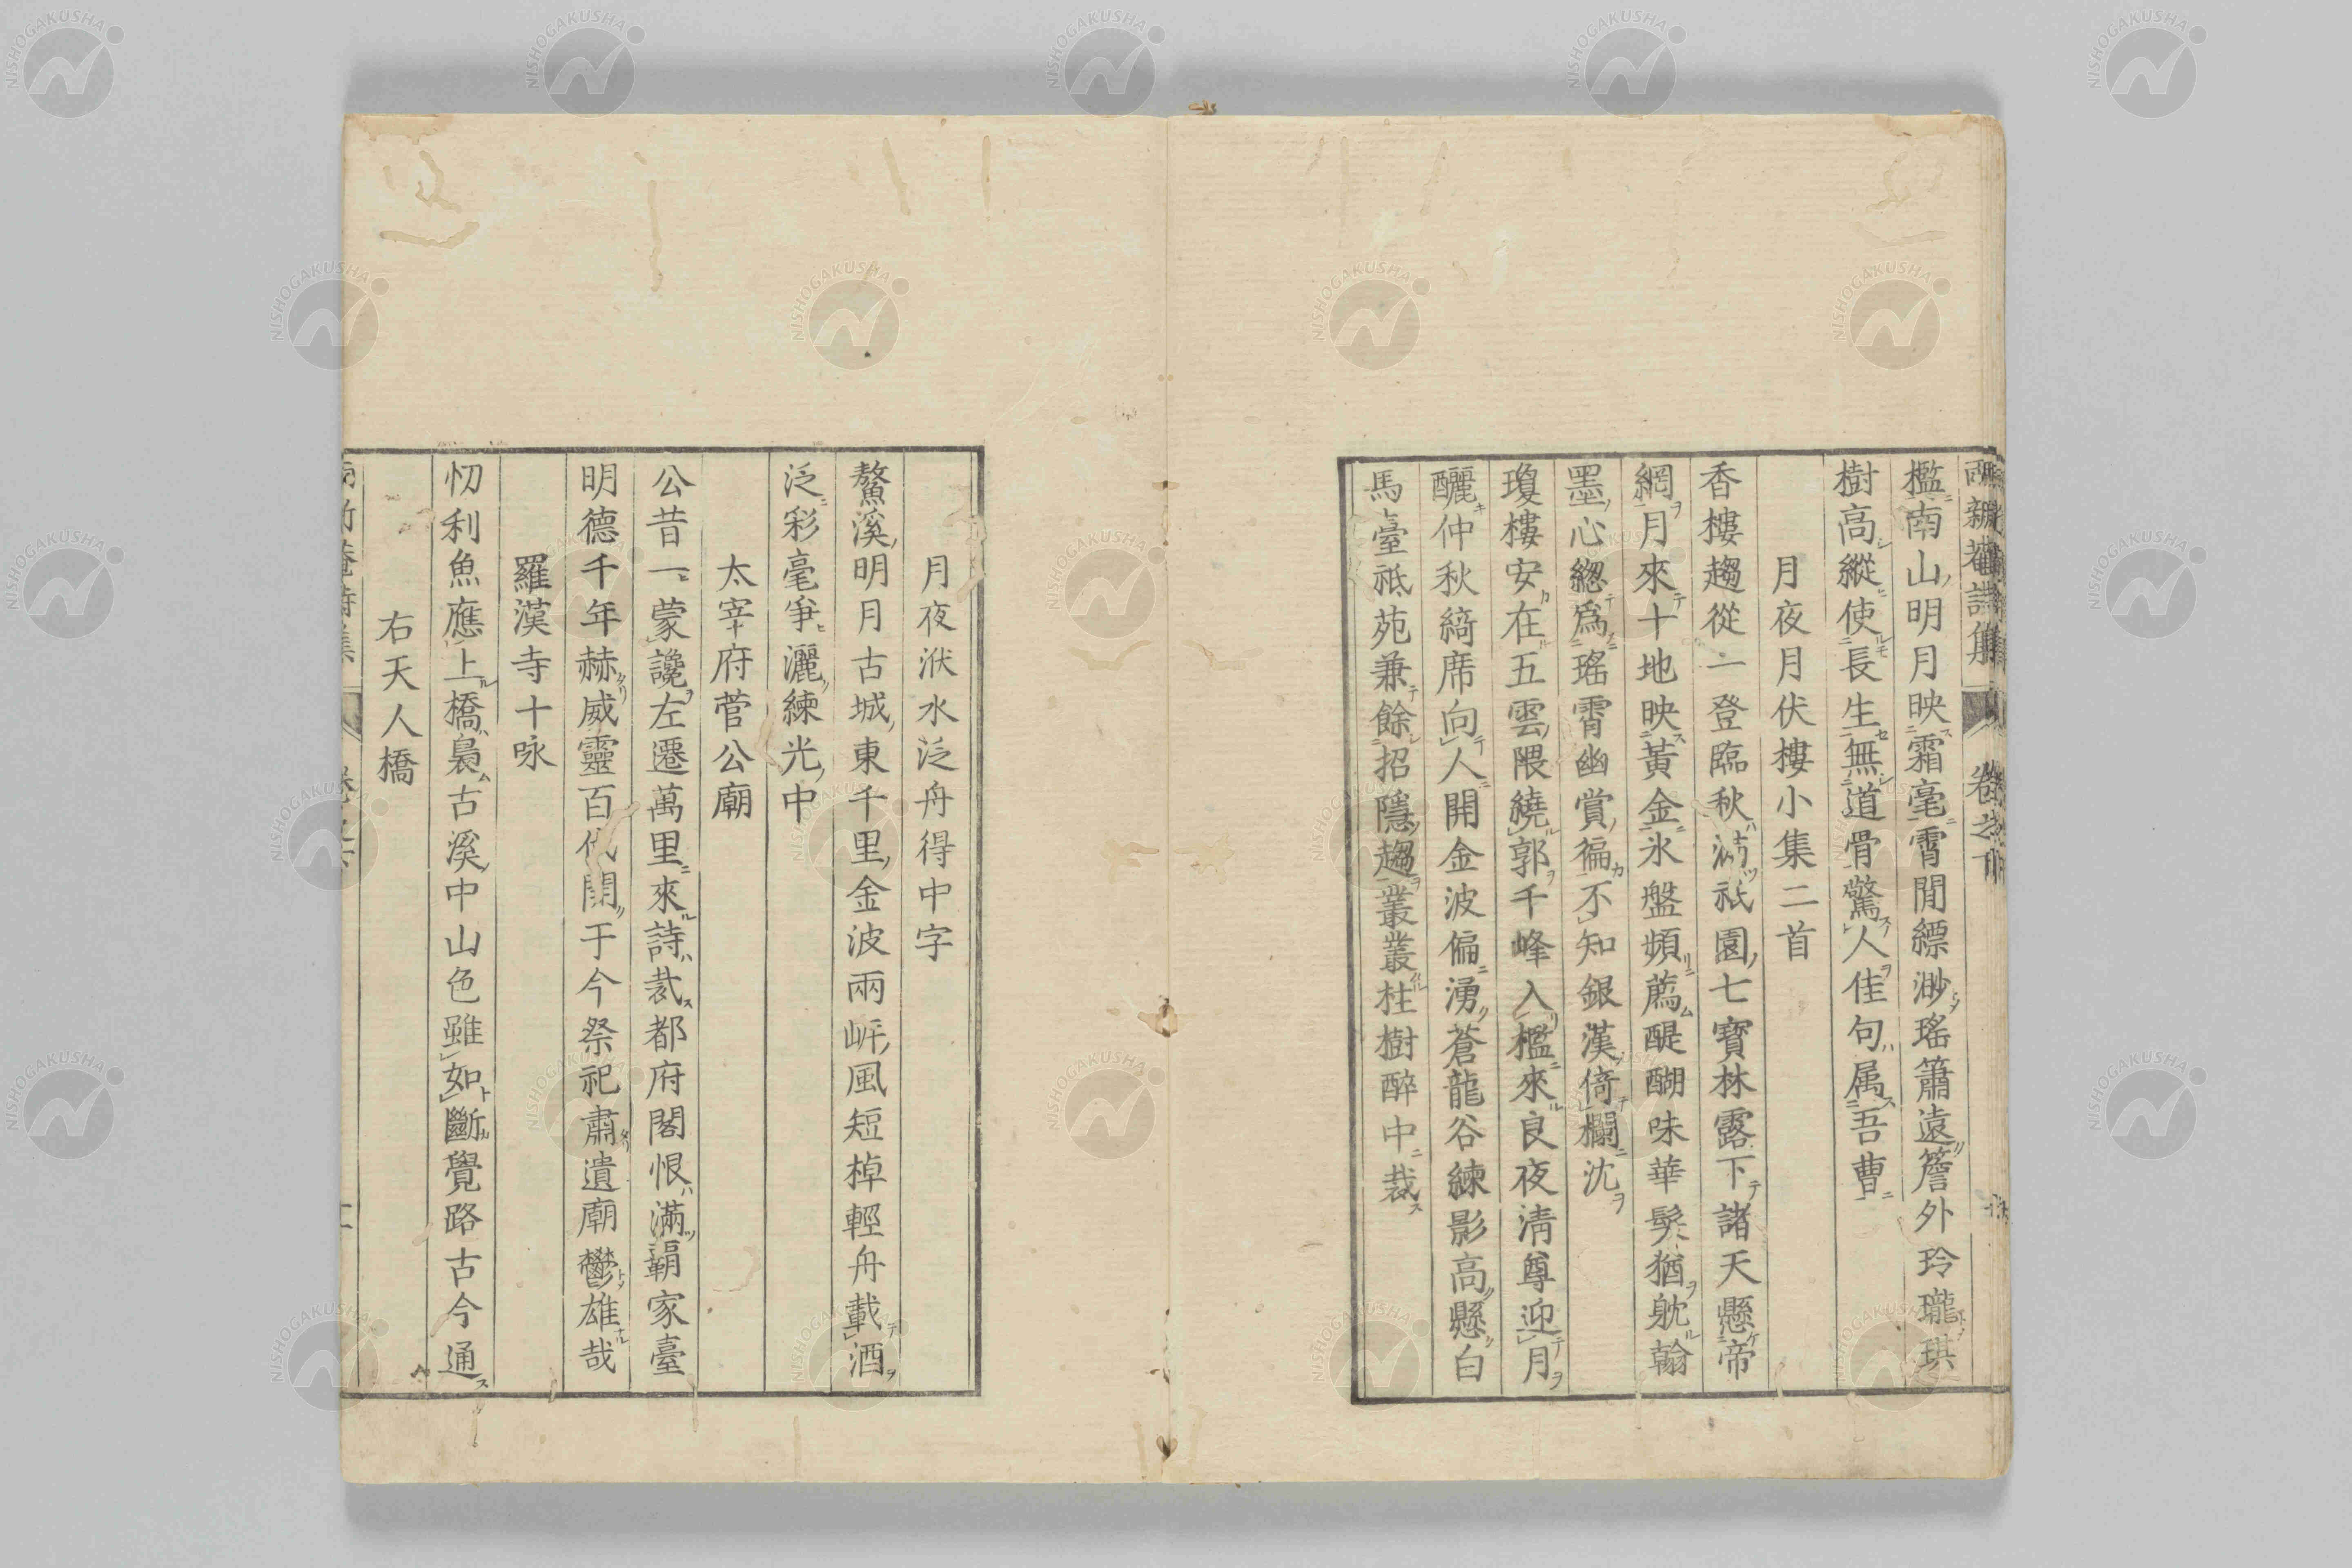 檻南山明月映霜毫霄間縹渺瑤簫遠簷外玲瓏珙
樹高縱使長生無道骨驚人佳句属吾曹
月夜月伏樓小集二首
香樓趨從一登臨秋満祇園七寶林露下諸天懸帝
網月來十地映黃金氷盤頻薦醍醐味華髮猶躭翰
墨心總爲瑤霄幽賞徧不知銀漢倚欄沈
瓊樓安在五雲隈繞郭千峰入檻來良夜清尊迎月
釃仲秋綺席向人開金波偏湧蒼龍谷練影高懸白
馬臺祇苑兼餘招隱趨叢叢桂樹醉中裁
月夜洑水泛舟得中字
鰲溪明月古城東千里金波兩岍風短棹輕舟載酒
泛彩毫爭灑練光中
太宰府菅公廟
公昔一蒙讒左遷萬里來詩裁都府閣恨滿覇家臺
明德千年赫威靈百代開于今祭祀肅遺廟鬱雄哉
羅漢寺十咏
忉利魚應上橋裊古溪中山色雖如斷覺路古今通
右天人橋
NISHOGAKUSHA